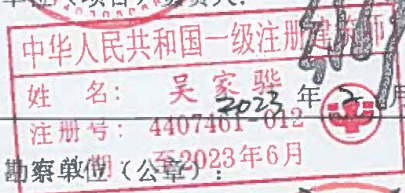 中华人民共和国一级注册建筑师
姓 名: 吴家骅
2023 年 2 月
注册号: 4407461-012
有效期 至2023年6月
勘察单位（公章）: